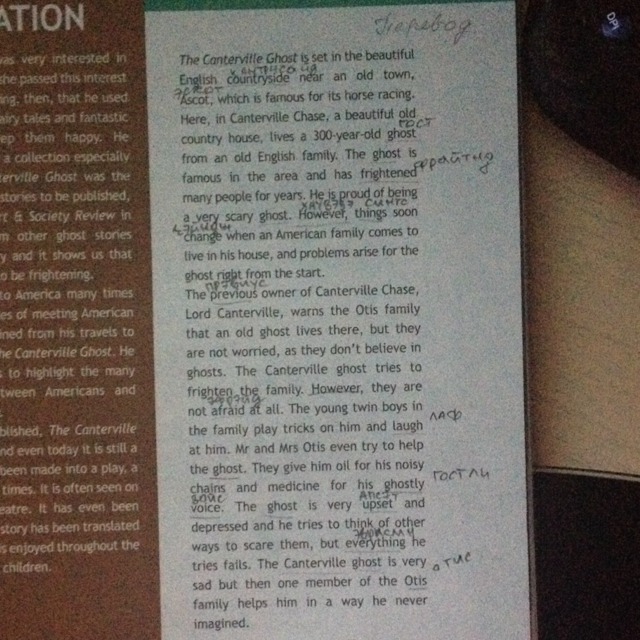 ATION
was very interested in
she passed this interest
ing, then, that he used
airy tales and fantastic
ep them happy. He
a collection especially
terville Ghost was the
stories to be published,
rt & Society Review in
m other ghost stories
y and it shows us that
o be frightening.
to America many times
es of meeting American
ined from his travels to
he Canterville Ghost. He
s to highlight the many
tween Americans and
blished, The Canterville
nd even today it is still a
been made into a play, a
times. It is often seen on
eatre. It has even been
story has been translated
s enjoyed throughout the
children.
Перевод
The Canterville Ghost is set in the beautiful
English countryside near an old town,
Ascot, which is famous for its horse racing.
Here, in Canterville Chase, a beautiful old
гост
country house, lives a 300-year-old ghost
from an old English family. The ghost is
фрайтид
famous in the area and has frightened
many people for years. He is proud of being
a very scary ghost. However, things soon
change when an American family comes to
live in his house, and problems arise for the
ghost right from the start.
The previous owner of Canterville Chase,
Lord Canterville, warns the Otis family
that an old ghost lives there, but they
are not worried, as they don't believe in
ghosts. The Canterville ghost tries to
frighten the family. However, they are
not afraid at all. The young twin boys in
лаф
the family play tricks on him and laugh
at him. Mr and Mrs Otis even try to help
the ghost. They give him oil for his noisy
гостли
chains and medicine for his ghostly
войс
voice. The ghost is very upset and
depressed and he tries to think of other
ways to scare them, but everything he
tries fails. The Canterville ghost is very
отис
sad but then one member of the Otis
family helps him in a way he never
imagined.
DPI